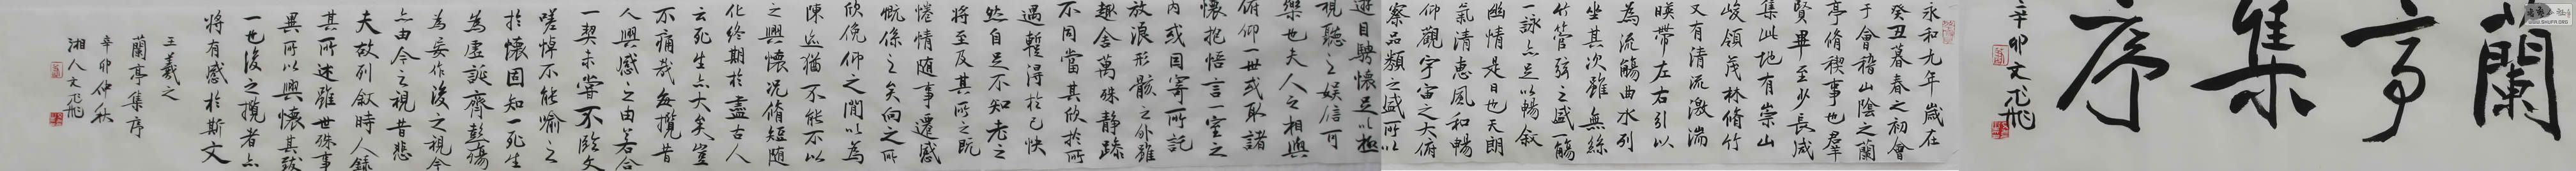 蘭亭集序
辛卯文飛
永和九年歲在
癸丑暮春之初會
于會稽山陰之蘭
亭脩稧事也羣
賢畢至少長咸
集此地有崇山
峻領茂林脩竹
又有清流激湍
暎帶左右引以
為流觴曲水列
坐其次雖無絲
竹管弦之盛一觴
一詠亦足以暢叙
幽情是日也天朗
氣清惠風和暢
仰觀宇宙之大俯
察品類之盛所以
遊目騁懷足以極
視聽之娛信可
樂也夫人之相與
俯仰一世或取諸
懷抱悟言一室之
內或因寄所託
放浪形骸之外雖
趣舍萬殊静躁
不同當其欣於所
遇蹔得於己快
然自足不知老之
將至及其所之既
惓情隨事遷感
慨係之矣向之所
欣俛仰之間以為
陳迹猶不能不以
之興懷況脩短隨
化終期於盡古人
云死生亦大矣豈
不痛哉每攬昔
人興感之由若合
一契未嘗不臨文
嗟悼不能喻之
於懷固知一死生
為虛誕齊彭殤
為妄作後之視今
亦由今之視昔悲
夫故列叙時人錄
其所述雖世殊事
異所以興懷其致
一也後之攬者亦
將有感於斯文
王羲之
蘭亭集序
辛卯仲秋
湘人文飛